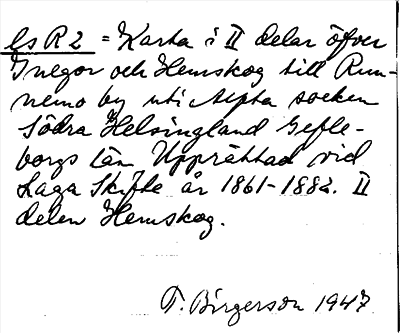 ls R 2 = Karta i II delar öfver
Inegor och Hemskog till Run-
nemo by uti Alfta socken
Södra Helsingland Gefle-
borgs Län Upprättad vid
Laga Skifte år 1861-1882. II
delen Hemskog.
T. Birgerson 1947